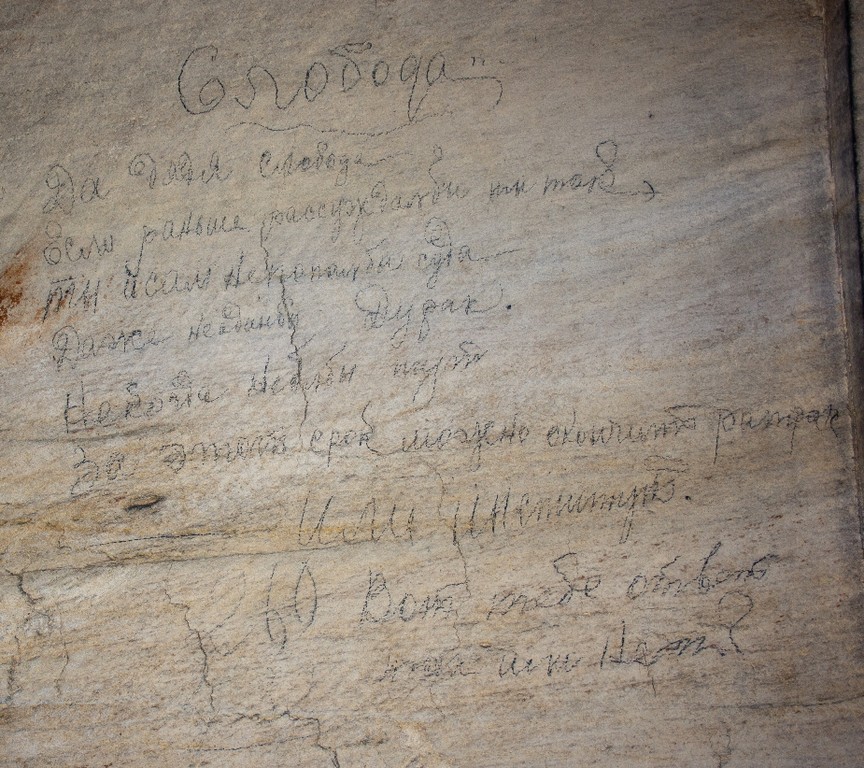 Слобода"
Да дядя слобода
Если раньше рассуждалбы ты так,
ты и сам непопалбы суда
Даже неодинъ Дурак.
Накозде небылбы
За этотъ срок можно окончить
или Институтъ.
Вот тебе ответ
или Нет?